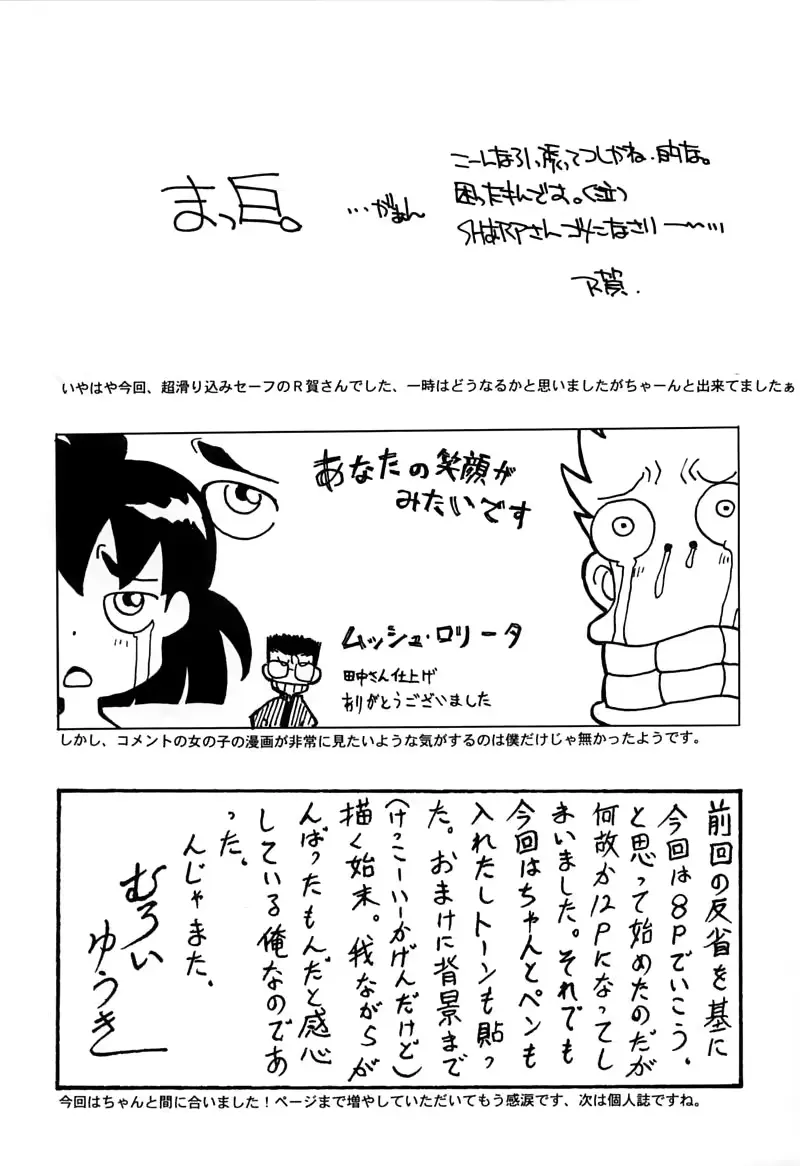 まっ白。
…がぁん
困ったもんです。(泣)
SHARPさんゴメンなさいー〜…
R賀.
いやはや今回、超滑り込みセーフのR賀さんでした、一時はどうなるかと思いましたがちゃーんと出来てましたぁ
あなたの笑顔が
みたいです
ムッシュ・ロリータ
田中さん仕上げ
ありがとうございました
しかし、コメントの女の子の漫画が非常に見たいような気がするのは僕だけじゃ無かったようです。
前回の反省を基に
今回は8Pでいこう、
と思って始めたのだが
何故か12Pになってし
まいました。それでも
今回はちゃんとペンも
入れたしトーンも貼っ
た。おまけに背景まで
(けっこーいーかげんだけど)
描く始末。我ながらが
んばったもんだと感心
している俺なのであ
った。
んじゃまた、
むろい
ゆうき
今回はちゃんと間に合いました！ページまで増やしていただいてもう感涙です、次は個人誌ですね。